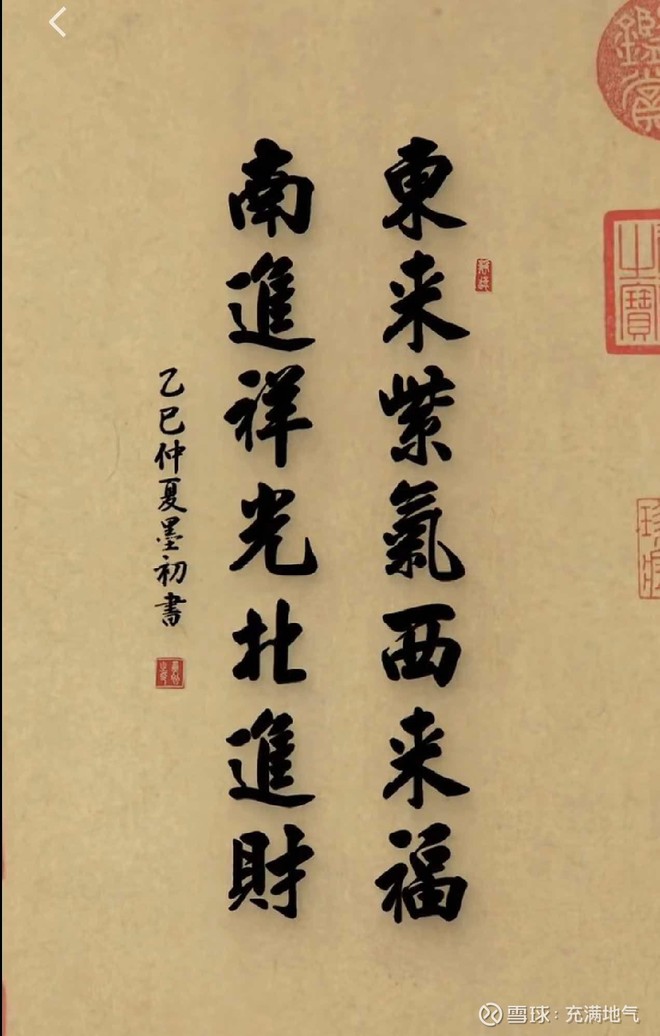 東来紫氣西来福
南進祥光北進財
乙巳仲夏墨初書
鑑賞
之寶
雪球：充满地气